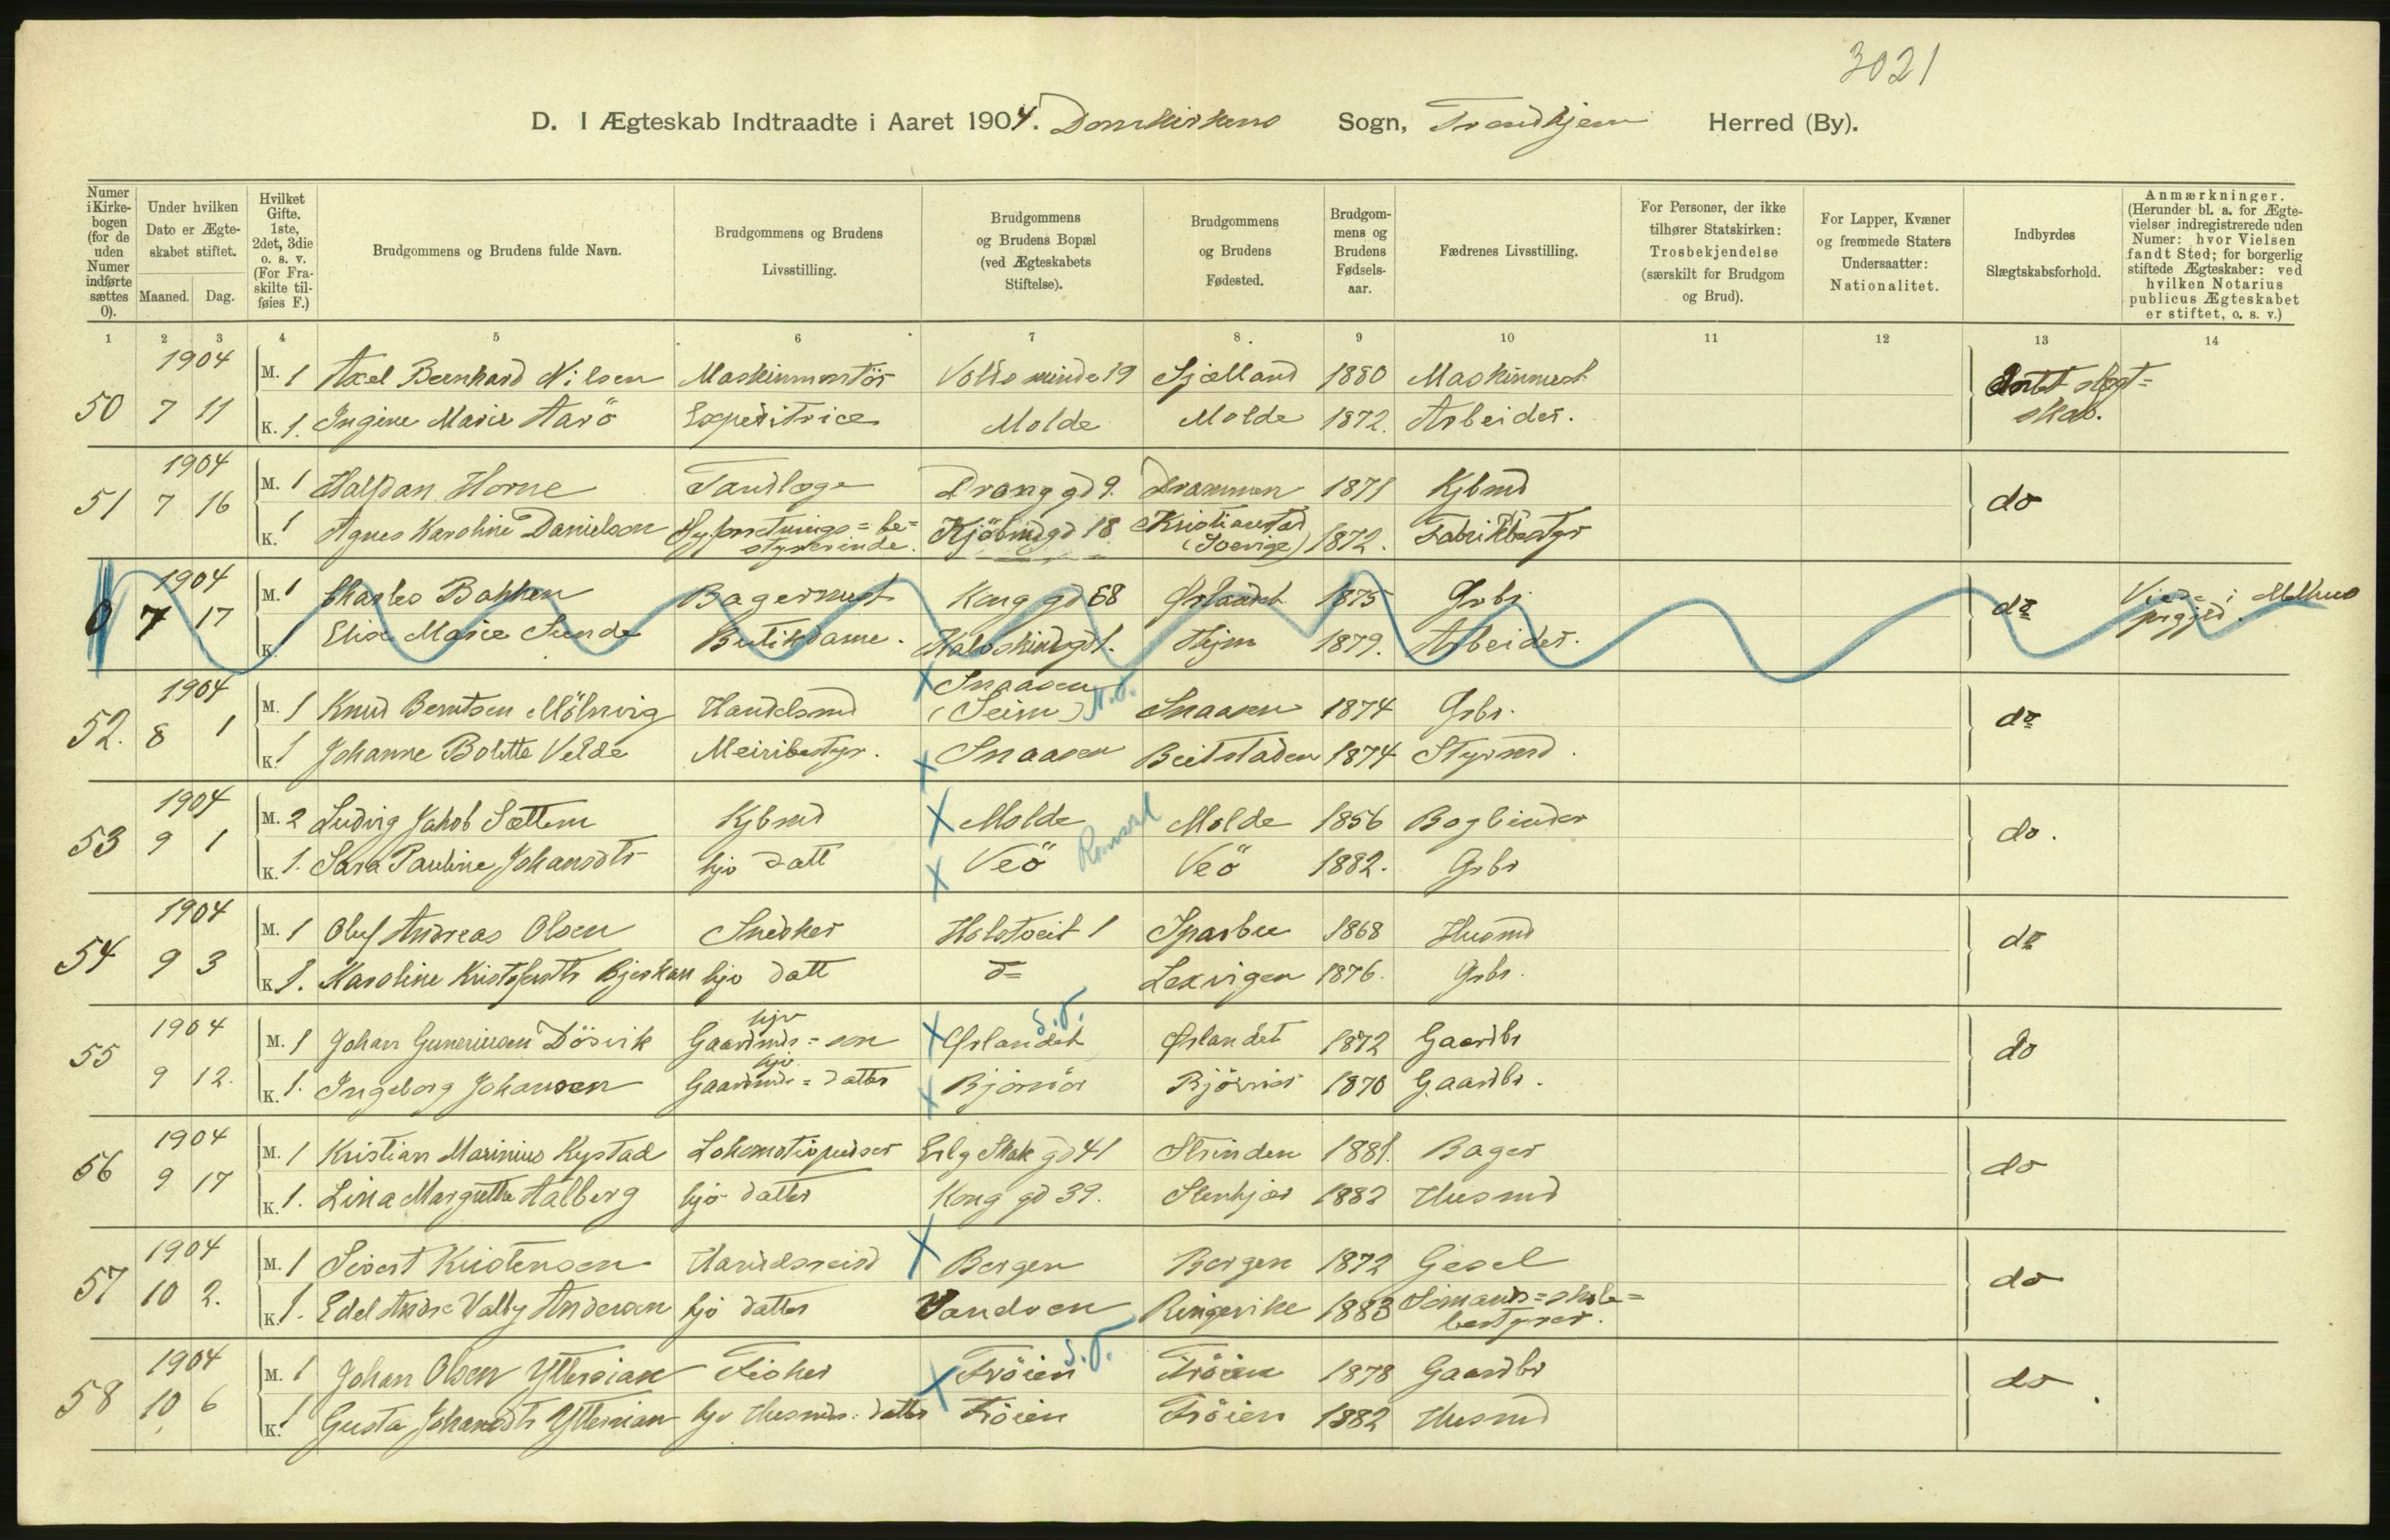 3021
D. I Ægteskab Indtraadte i Aaret 1904. Domkirkens Sogn, Trondhjem Herred (By).
Numer i Kirkebogen (for de uden Numer indførte sættes 0).
Under hvilken Dato er Ægteskabet stiftet.
Maaned. Dag.
Hvilket Gifte. 1ste, 2det, 3die o. s. v. (For Fraskilte tilføies F.)
Brudgommens og Brudens fulde Navn.
Brudgommens og Brudens Livsstilling.
Brudgommens og Brudens Bopæl (ved Ægteskabets Stiftelse).
Brudgommens og Brudens Fødested.
Brudgommens og Brudens Fødselsaar.
Fædrenes Livsstilling.
For Personer, der ikke tilhører Statskirken: Trosbekjendelse (særskilt for Brudgom og Brud).
For Lapper, Kvæner og fremmede Staters Undersaatter: Nationalitet.
Indbyrdes Slægtskabsforhold.
Anmærkninger. (Herunder bl. a. for Ægtevielser indregistrerede uden Numer: hvor Vielsen fandt Sted; for borgerlig stiftede Ægteskaber: ved hvilken Notarius publicus Ægteskabet er stiftet, o. s. v.)
1 2 3 4 5 6 7 8 9 10 11 12 13 14
1904
M. 1 Axel Bernhard Nilsen Maskinmontör Voldsminde 19 Sjælland 1880 Maskinmest
50 7 11 Intet slægt=skab.
K. 1. Ingine Marie Aarö Expeditrice Molde Molde 1872. Arbeider.
1904
M. 1 Halfdan Horne Tandlæge Drong gd 9. Drammen 1871 Kjbmd
51 7 16 do
K. 1 Agnes Karoline Danielson Syforretnings=be=styrerinde. Kjöbmdgd 18 Kristianstad (Sverige) 1872. Fabrikbestyr
1904
M. 1 Charles Bakken Bagermest Kong gd 68 Ørlandet 1875 Grbr.
0 7 17 do Viede i Melhus prgjld.
K. Elise Marie Sunde Butikdame. Kalvskindgd 1. Thjm 1879. Arbeider.
1904
M. 1 Knud Berntsen Mölnvig Handelsmd Snaasen (Seim) N.T. Snaasen 1874 Grbr.
52. 8 1 do
K. 1 Johanne Bolette Velde Meiribestyr. Snaasen Beitstaden 1874 Styrmd.
1904
M. 2 Ludvig Jakob Sættem Kjbmd Molde Romsd Molde 1856 Bogbinder
53 9 1 do.
K. 1. Sara Pauline Johansdtr hjv datt Veö Veö 1882. Grbr
1904
M. 1 Oluf Andreas Olsen Snedker Holstveit 1 Sparbu 1868 Husmd
54 9 3 do
K. 1. Karoline Kristofersdtr Bjerkan hjv datt do Lexvigen 1876. Grbr.
1904
M. 1 Johan Guneriusen Dösvik hjv Gaardmds=søn Ørlandet S.T. Ørlandet 1872 Gaardbr
55 9 12. do
K. 1. Ingeborg Johansen hjv. Gaardmds=datter Bjørnör Bjørnör 1870 Gaardbr.
1904
M. 1 Kristian Marinius Rystad Lokomotivpudser Erlg Skak gd 41 Strinden 1881. Bager
56 9 17 do
K. 1. Lina Margrethe Aalberg hjv datter Kong gd 39. Stenkjær 1882 Husmd
1904
M. 1 Sivert Kristensen Handelsreisd Bergen Bergen 1872 Gjesel
57 10 2. do
K. 1. Edel Andre Valby Andersen hjv datter Sandven Ringerike 1883 Sömands=skole=bestyrer.
1904
M. 1 Johan Olsen Ytterian Fisker Fröien S.T. Fröien 1878 Gaardbr
58 10 6 do.
K. 1 Gusta Johansdtr Ytterian hjv Husmds. datter Fröien Fröien 1882 Husmd